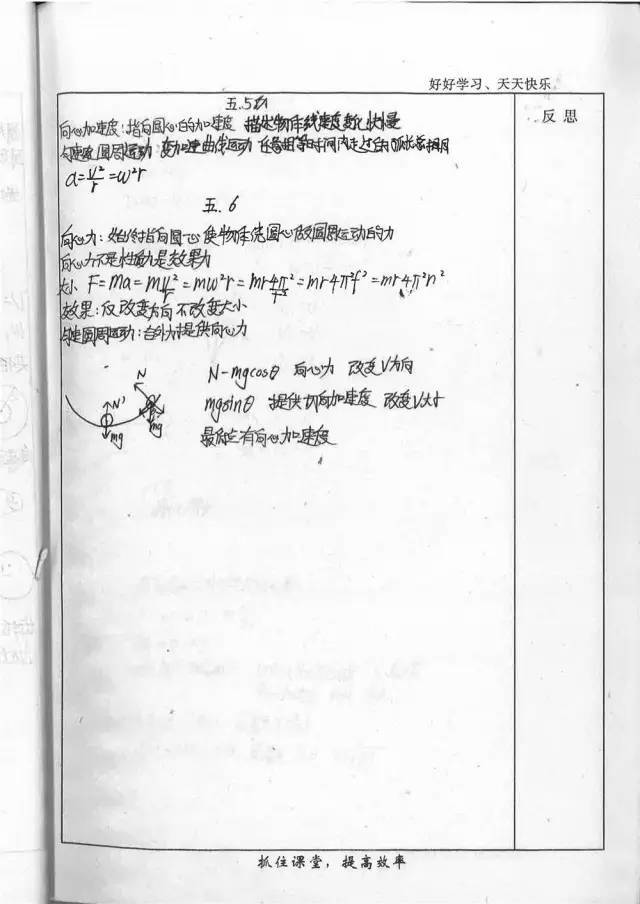 好好学习、天天快乐
反思
五.5
向心加速度:指向圆心的加速度 描述物体线速度变化快慢
匀速圆周运动 变加速曲线运动 任意相等时间内走过的弧长总相同
a=v²/r=ω²r
五.6
向心力:始终指向圆心使物体绕圆心做圆周运动的力
向心力不是性质力是效果力
大小 F=ma=mv²/r=mω²r=mr4π²/T²=mr4π²f²=mr4π²n²
效果:仅改变方向不改变大小
匀速圆周运动:合外力提供向心力
N-mgcosθ 向心力 改变V方向
N
N'
mgsinθ 提供切向加速度 改变V大小
mg
mg
最低点有向心加速度
抓住课堂,提高效率